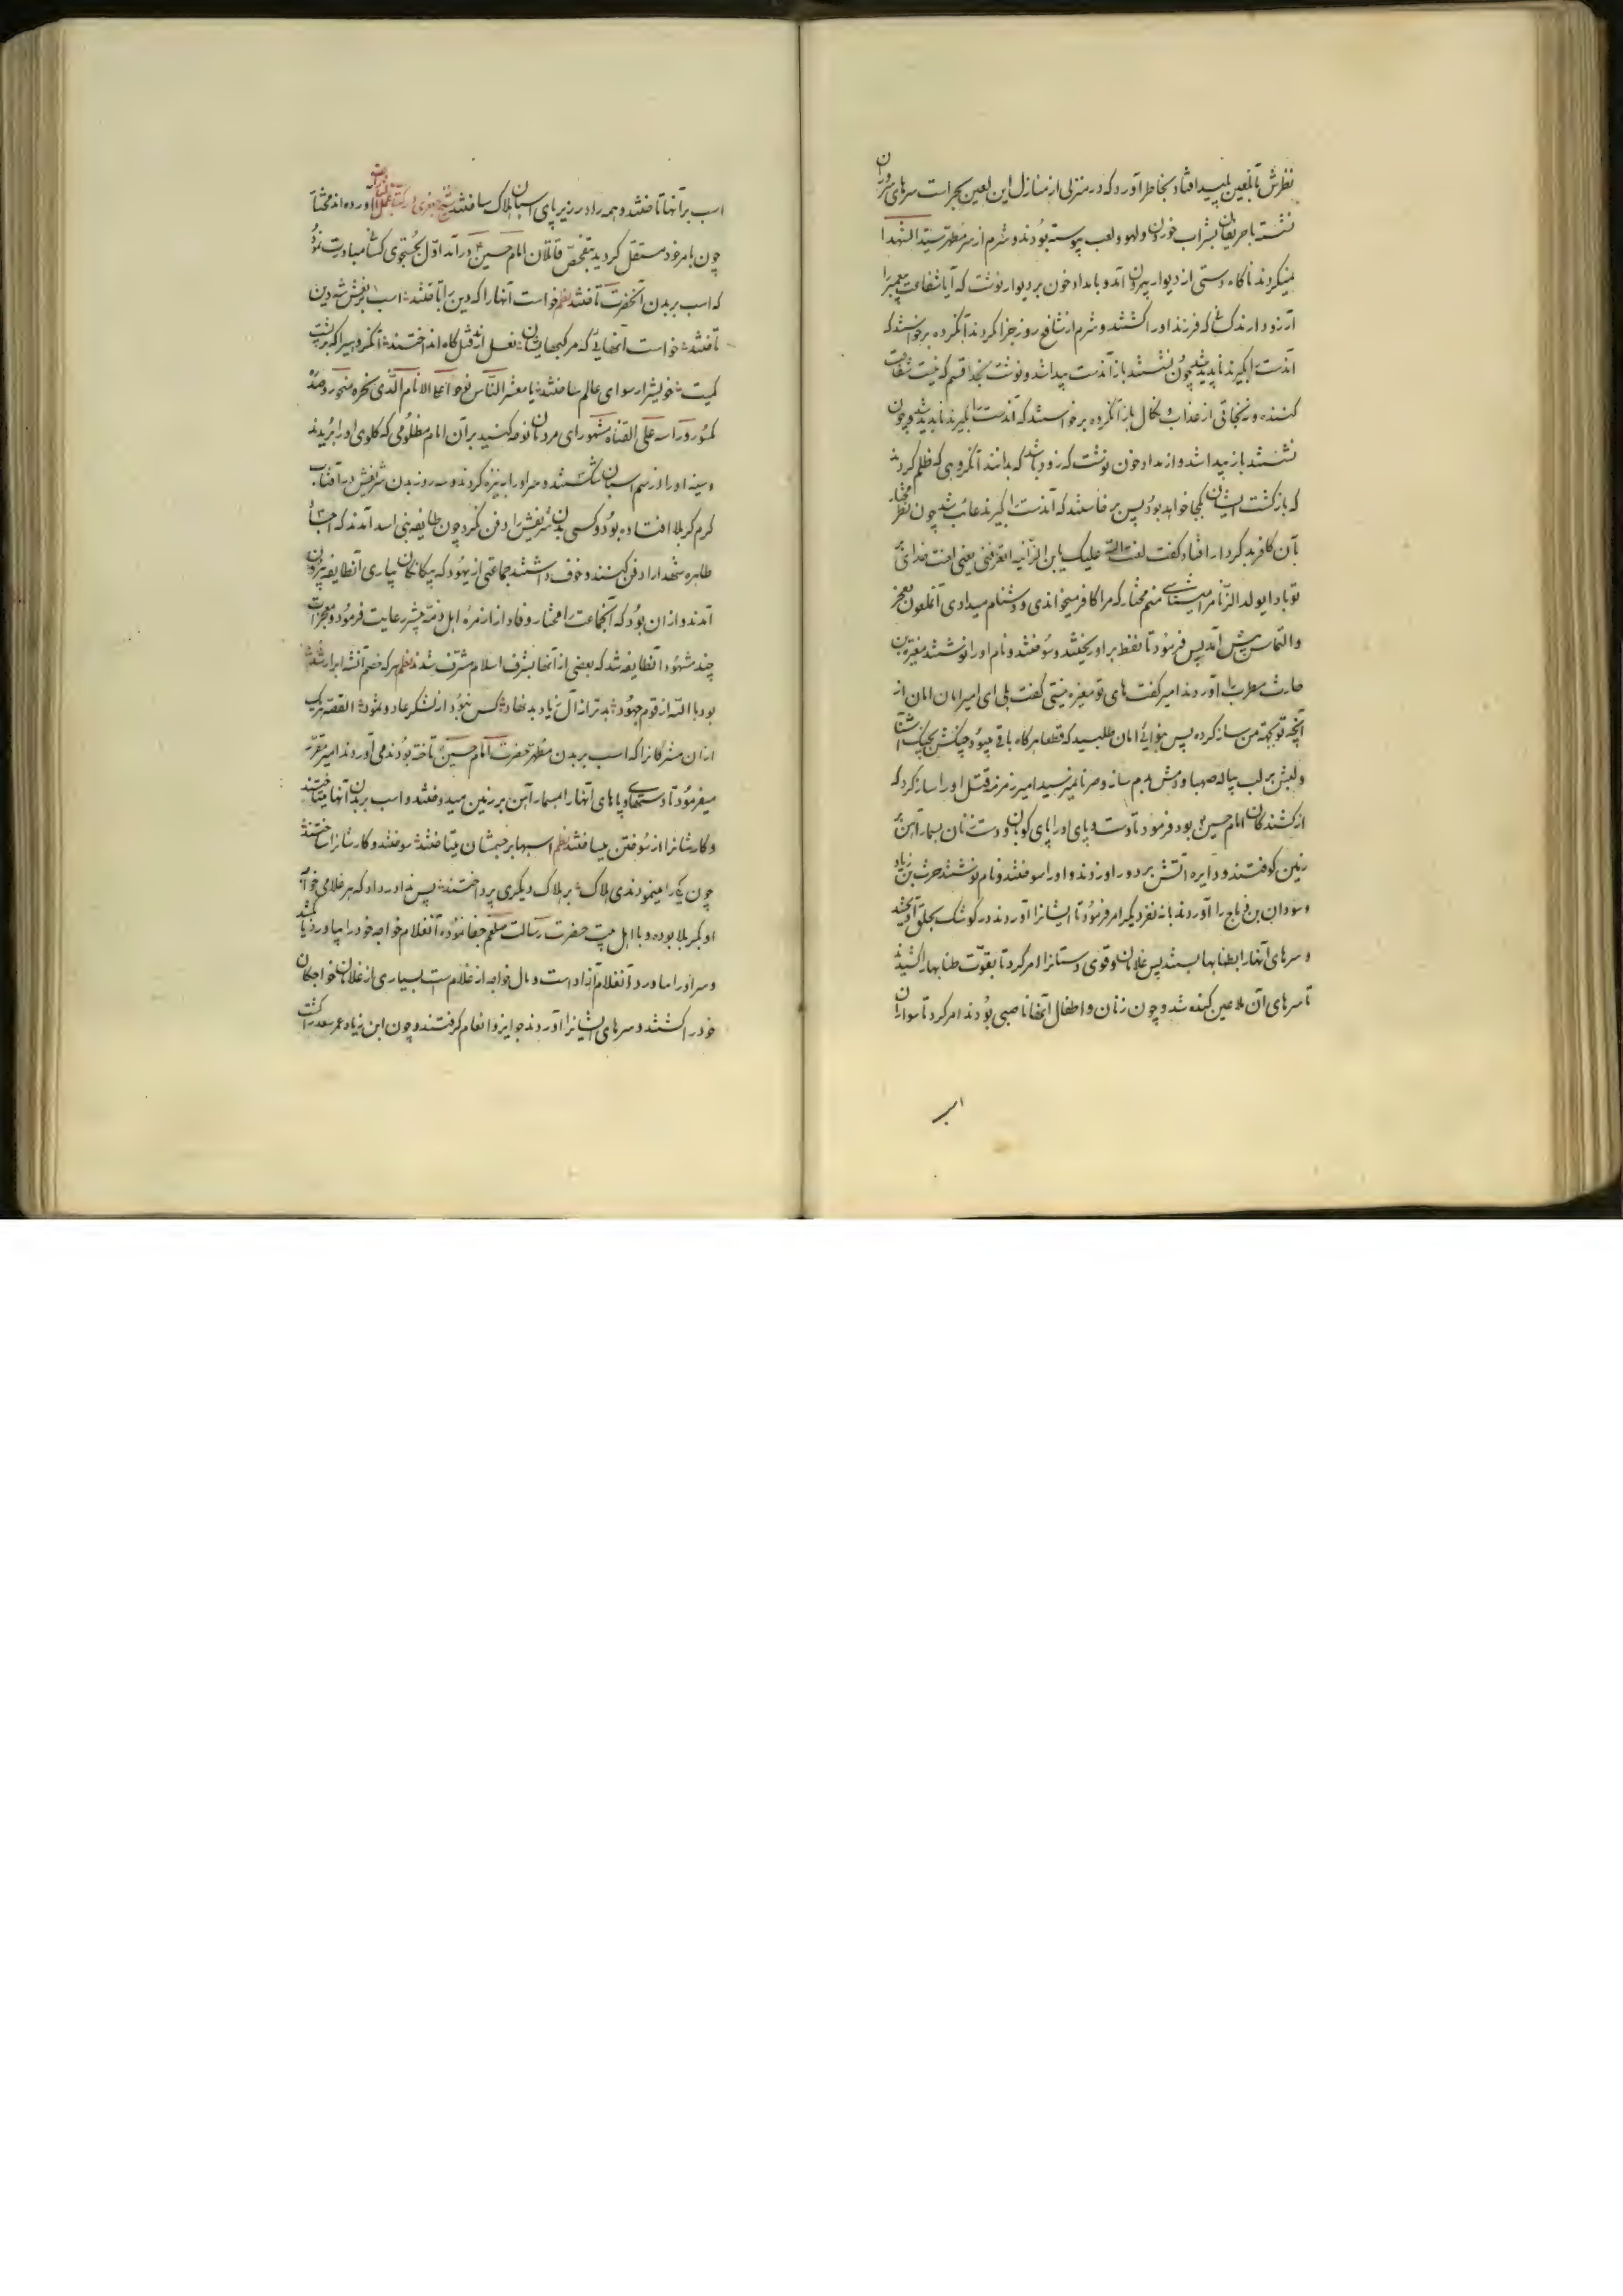 نظرش بآنلعین پلید افتاد بخاطر آورد که در منزلی از منازل این لعین بجراست سرهای سروران
نشسته با حریفان بشراب خوردن و لهو و لعب پیوسته بودند و شرم از سر مطهر سید الشهدا
نمیکردند ناگاه دستی از دیوار بیرون آمد و بامداد خون بر دیوار نوشت که آیا شفاعت پیغمبر را
آرزو دارند کسانی که فرزند او را کشتند و شرم از شافع روز جزا نکردند آنگروه برخواستند که
آندست را بگیرند ناپدید شد چون نشستند باز آندست پیدا شد و نوشت بخدا قسم که نیست شفاعت
کننده و نجاتی از عذاب و نکال باز آنگروه برخواستند که آندست را بگیرند ناپدید شد و چون
نشستند باز پیدا شد و از مداد خون نوشت که زود باشد که بدانند آنگروهی که ظلم کردند
که بازگشت ایشان بکجا خواهد بود پس برخاستند که آندست را بگیرند غائب شد چون نظر مختار
بآن کافر بدکردار افتاد گفت لعنت الله علیک یابن الزانیه اتعرفنی یعنی لعنت خدای بر
تو باد ایولد الزنا مرا میشناسی منم مختار که مرا کافر میخواندی و دشنام میدادی آنملعون بعجز
و التماس پیش آمد پس فرمود تا نفط بر او ریختند و سوختند و نام او را نوشتند مغیره بن
حارث مطرب را آوردند امیر گفت های تو مغیره نیستی گفت بلی ای امیر امان امان از
آنچه تو بجهة من ساز کرده پس بنوائی امان طلبید که قطعا هرگاه باقی میبود چنگش بچنگ آشنا
و لبش بر لب پیاله صهبا و دمش بدم ساز و صرنا نمیرسید امیر زمزمه قتل او را ساز کرد که
از کشندگان امام حسین بود فرمود تا دست و پای او را پای کوبان و دست زنان بمسمار آهن بر
زمین کوفتند و دایره آتش بر دور او زدند و او را سوختند و نام نوشتند حرث بن زیاد
و سودان بن دباج را آوردند با نه نفر دیگر امر فرمود تا ایشانرا آوردند در کوشک بحلق آویختند
و سرهای آنها را بطنابها بستند پس غلامان و قوی دستانرا امر کرد تا بقوت طنابها را کشیدند
تا سرهای آن ملاعین کنده شد و چون زنان و اطفال آنها ناصبی بودند امر کرد تا سواران
اسب
اسب بر آنها تاختند و همه را در زیر پای اسبان هلاک ساختند شیخ جعفری در کتاب آورده اند مختار
چون بامر خود مستقل گردید بتفحص قاتلان امام حسین ع درآمد اول بجستجوی کسانی مبادرت نمود
که اسب بر بدن آنحضرت تاختند نظم خواست آنها را که دین را باختند اسب بر نعش شه دین
تاختند خواست آنهائی که مرکبهایشان نعل از قتل گاه انداختند آنگروهیرا که بر پشت
کمیت خویشرا رسوای عالم ساختند یا معشر الناس نوحوا علی الامام الذی نحره منحور و صدره
مکسور و راسه علی القناة مشهور ای مردمان نوحه کنید بر آن امام مظلومی که گلوی او را بریدند
و سینه او را از سم اسبان شکستند و سر او را بر نیزه کردند و سه روز بدن شریفش در آفتاب
گرم کربلا افتاده بود و کسی بدن شریفش را دفن نکرد چون طایفه بنی اسد آمدند که اجساد
طاهره شهدا را دفن کنند و خوف داشتند جماعتی از یهود که بیگانگان بیاری آنطایفه بیرون
آمدند و از آن بود که آنجماعت را مختار وفادار از زمره اهل ذمه بیشتر رعایت فرمود و معجزات
چند مشهود آنطایفه شد که بعضی از آنها بشرف اسلام مشرف شدند نظم هر که خصم آنشه ابرار شد
بود با الله از قوم جهود بدتر از آل زیاد بد نهاد کس نبود از لشکر عاد و ثمود القصه هر یک
از آن مشرکانرا که اسب بر بدن مطهر حضرت امام حسین ع تاخته بودند می آوردند امیر مقرر
میفرمود تا دستهای و پاهای آنها را بمسمار آهن بر زمین میدوختند و اسب بر بدن آنها میتاختند
و کارشانرا از سوختن میساختند نظم اسبها بر جسمشان میتاختند سوختند و کارشانرا ساختند
چون یکی را مینمودندی هلاک بر هلاک دیگری پرداختند پس ندا در داد که هر غلامی خواجه
او بکربلا بوده و با اهل بیت حضرت رسالت صلعم جفا نموده آنغلام خواجه خود را بیاورد یا بکشد
و سر او را بیاورد آنغلام آزاد است و مال خواجه از غلام است بسیاری از غلامان خواجگان
خود را کشتند و سرهای ایشانرا آوردند جوایز و انعام گرفتند و چون ابن زیاد عمر سعد را کشت